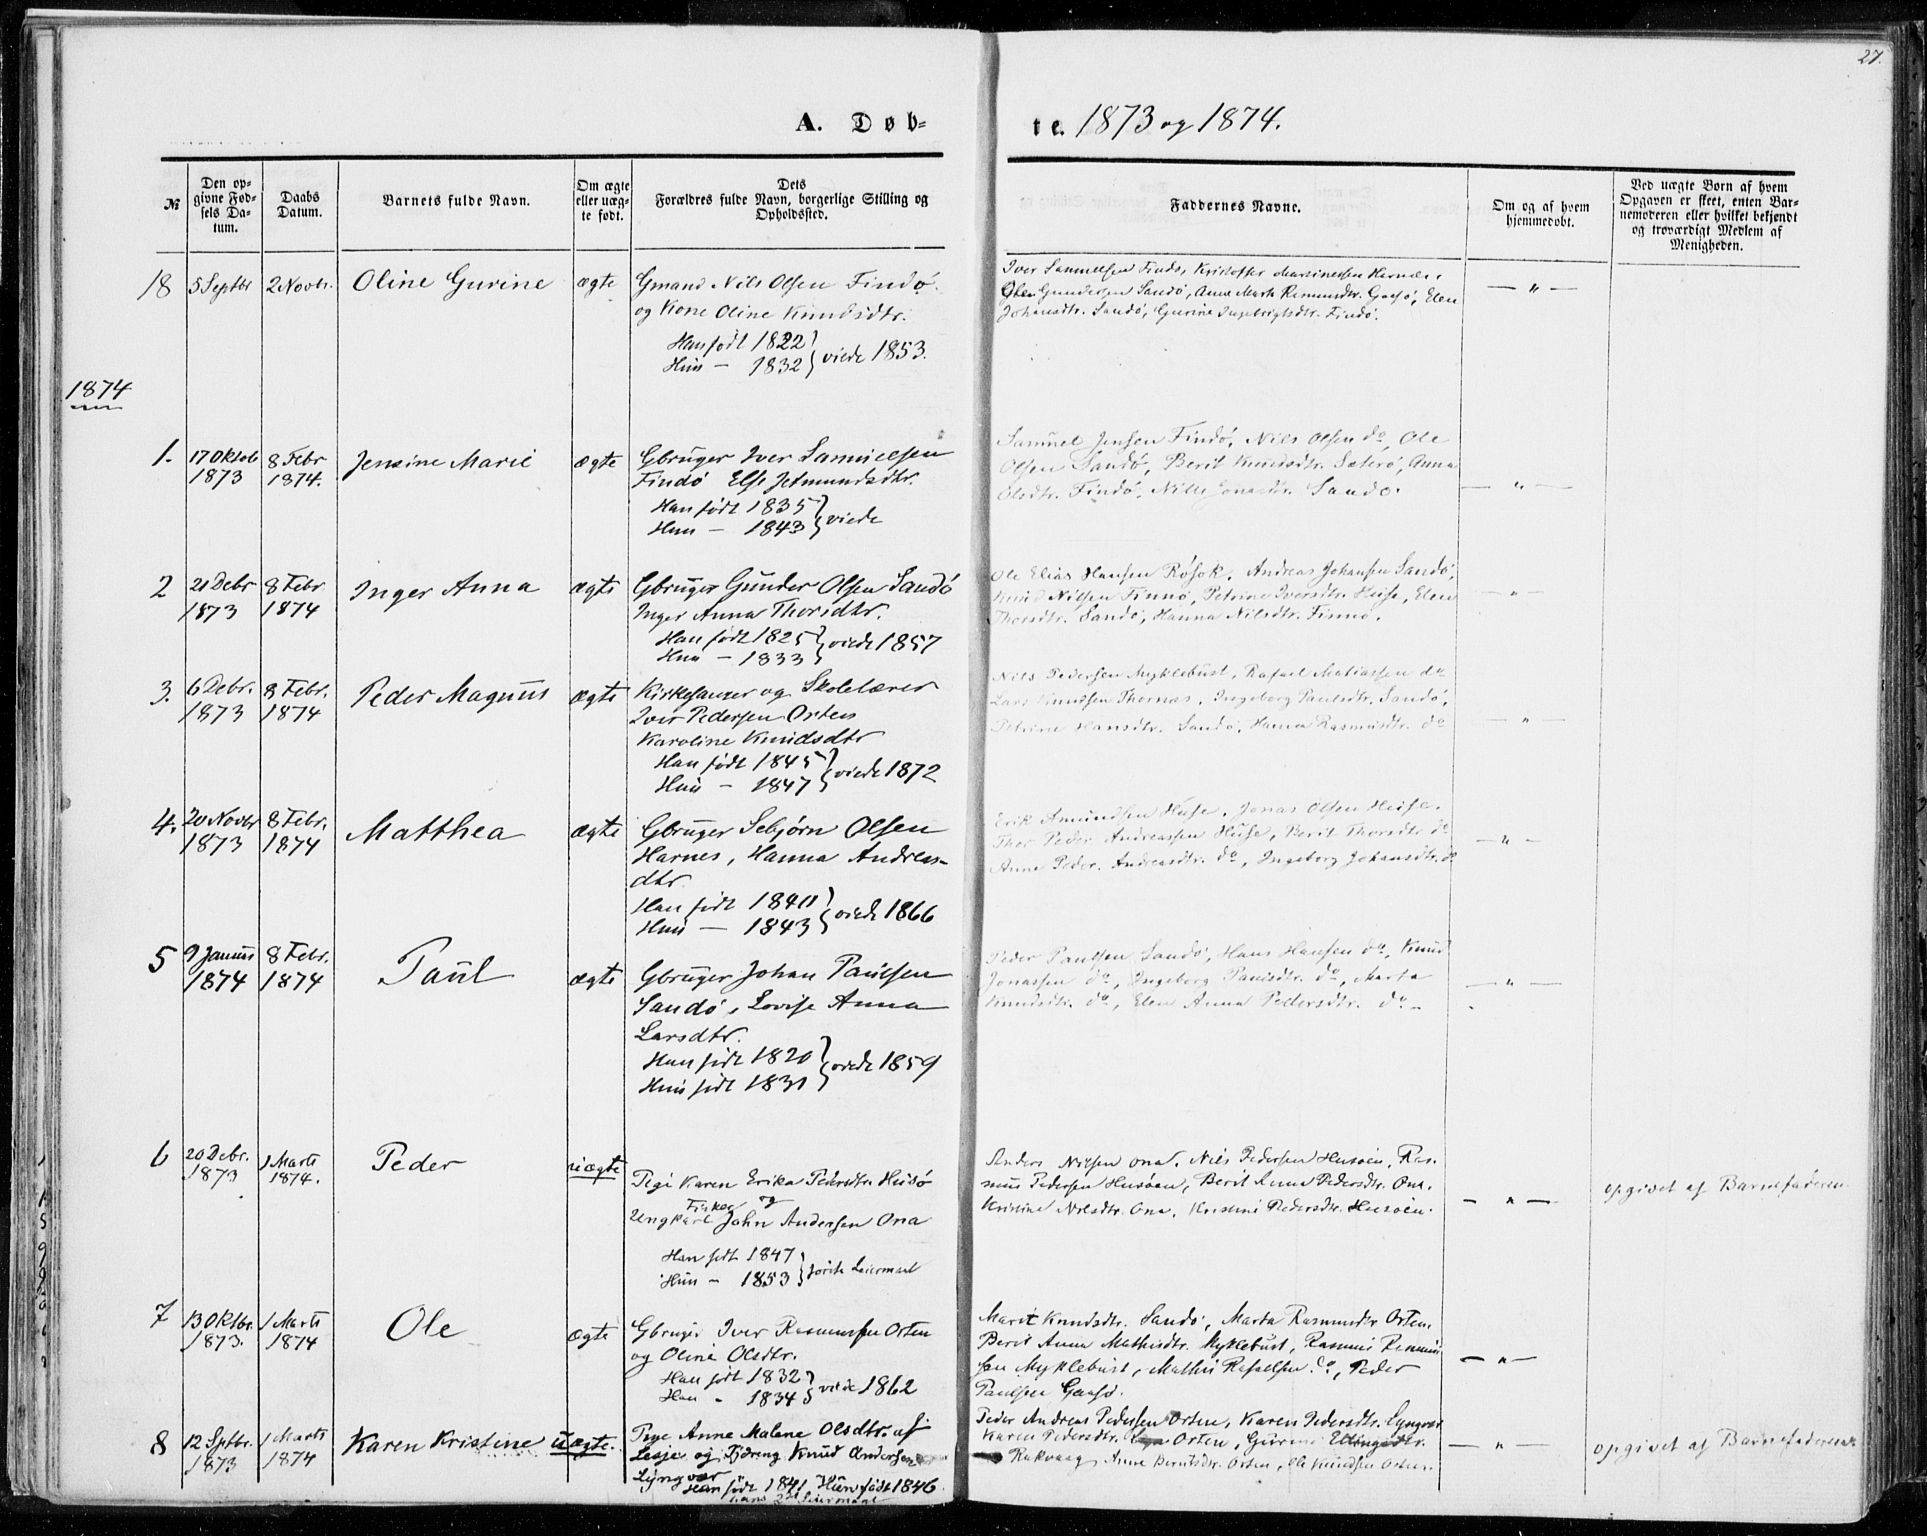 27.
A. Døb-
te. 1873 og 1874.
№
Den op-
givne Fød-
sels Da-
tum.
Daabs
Datum.
Barnets fulde Navn.
Om ægte
eller uæg-
te født.
Dets
Forældres fulde Navn, borgerlige Stilling og
Opholdssted.
Faddernes Navne.
Om og af hvem
hjemmedøbt.
Ved uægte Børn af hvem
Opgaven er skeet, enten Bar-
nemoderen eller hvilket bekjendt
og troværdigt Medlem af
Menigheden.
18
5 Septbr
2 Novbr.
Oline Gurine
ægte
Gmand Nils Olsen Findø.
og Kone Oline Knudsdtr.
Han født 1822
Hun — 1832 } viede 1853.
Iver Samuelsen Findø, Kristoffer
Gunder Sandø, Anne Marth Rimundtr. Gaasø, Elen
Johansdtr. Sandø, Gurine Ingebrigtsdtr. Findø.
— " —
1874
1.
17 Oktob
1873
8 Febr
1874.
Jensine Marie
ægte
Gbruger Iver Samuelsen
Findø Else Jetmundsdtr.
Han født 1835
Hun — 1843 } viede
Samuel Jensen Findø, Nils Olsen do, Ole
Olsen Sandø, Berit Knudsdtr. Sæterø, Anna
Olsdtr. Findø, Nille Jonasdtr. Sandø.
— " —
2
21 Debr
1873
8 Febr
1874
Inger Anna
ægte
Gbruger Gunder Olsen Sandø
Inger Anna Thorsdtr.
Han født 1825
Hun — 1833 } viede 1857
Ole Elias Hansen Røsok, Andreas Johansen Sandø,
Knud Nilsen Finnø, Petrine Iversdtr. Huse, Elen
Thorsdtr. Sandø, Hanna Nilsdtr. Finnø.
— " —
3.
6 Debr.
1873
8 Febr.
1874
Peder Magnus
ægte
Kirkesanger og Skolelærer
Iver Pedersen Orten
Karoline Knudsdtr
Han født 1845
Hun — 1847 } viede 1872
Nils Pedersen Myklebust, Rafael Matiassen do
Lars Knudsen Thornæs, Ingeborg Paulsdtr. Sandø,
Petrine Hansdtr. Sandø, Hanna Rasmusdtr. do
— " —
4.
20 Novbr
1873
8 Febr.
1874
Matthea
ægte
Gbruger Sebjørn Olsen
Harnes, Hanna Andreas-
dtr.
Han født 1840
Hun — 1843 } viede 1866
Erik Amundsen Huse, Jonas Olsen Huse.
Thor Peder Andreassen Huse, Berit Thorsdtr do
Anne Peder. Andreasdtr. do, Ingeborg Johansdtr. do
— " —
5
9 Januar
1874
8 Febr.
1874
Paul
ægte
Gbruger Johan Paulsen
Sandø, Lovise Anna
Larsdtr.
Han født 1820
Hun født 1831 } viede 1859
Peder Paulsen Sandø, Hans Hansen do, Knud
Jonassen do, Ingeborg Paulsdtr. do, Marta
Knudsdtr. do, Elen Anna Pedersdtr. do
— " —
6
20 Debr.
1873
1 Marts
1874.
Peder
uægte
Pige Karen Erika Pedersdtr. Husø
og
Ungkarl Fisker John Andersen Ona
Han født 1847
Hun — 1853 } første Leiermaal
Anders Nilsen Ona, Nils Pedersen Husøen, Ras-
mus Pedersen Husøen, Berit Anna Pedersdtr. Ona,
Kristine Nilsdtr. Ona, Kristine Pedersdtr. Husøen.
— " —
opgivet af Barnefaderen
7
13 Oktbr.
1873.
1 Marts
1874
Ole
ægte
Gbruger Iver Rasmussen Orten
og Oline Olsdtr.
Han født 1832
Hun " 1834 } viede 1862
Marit Knudsdtr. Sandø, Marta Rasmusdtr Orten,
Berit Anna Mathisdtr. Myklebust, Rasmus
sen Myklebust, Mathis Rafaelsen do, Peder
Paulsen Gaasø.
— " —
8
12 Sptbr.
1873
1 Marts
1874
Karen Kristine
uægte.
Pige Anne Malene Olsdtr. af
Lesje og Tjdreng Knud Andersen
Lyngvær
Han født 1841 Hun født 1846.
hans 2det Leiermaal
Peder Andreas Pedersen Orten, Karen Pedersdtr. Lyngvær
Karen Pedersdtr. Orten, Gurine
Rakvaag, Anne Berntsdtr. Orten, Ole Knudsen Orten.
— " —
opgivet af Barnefaderen